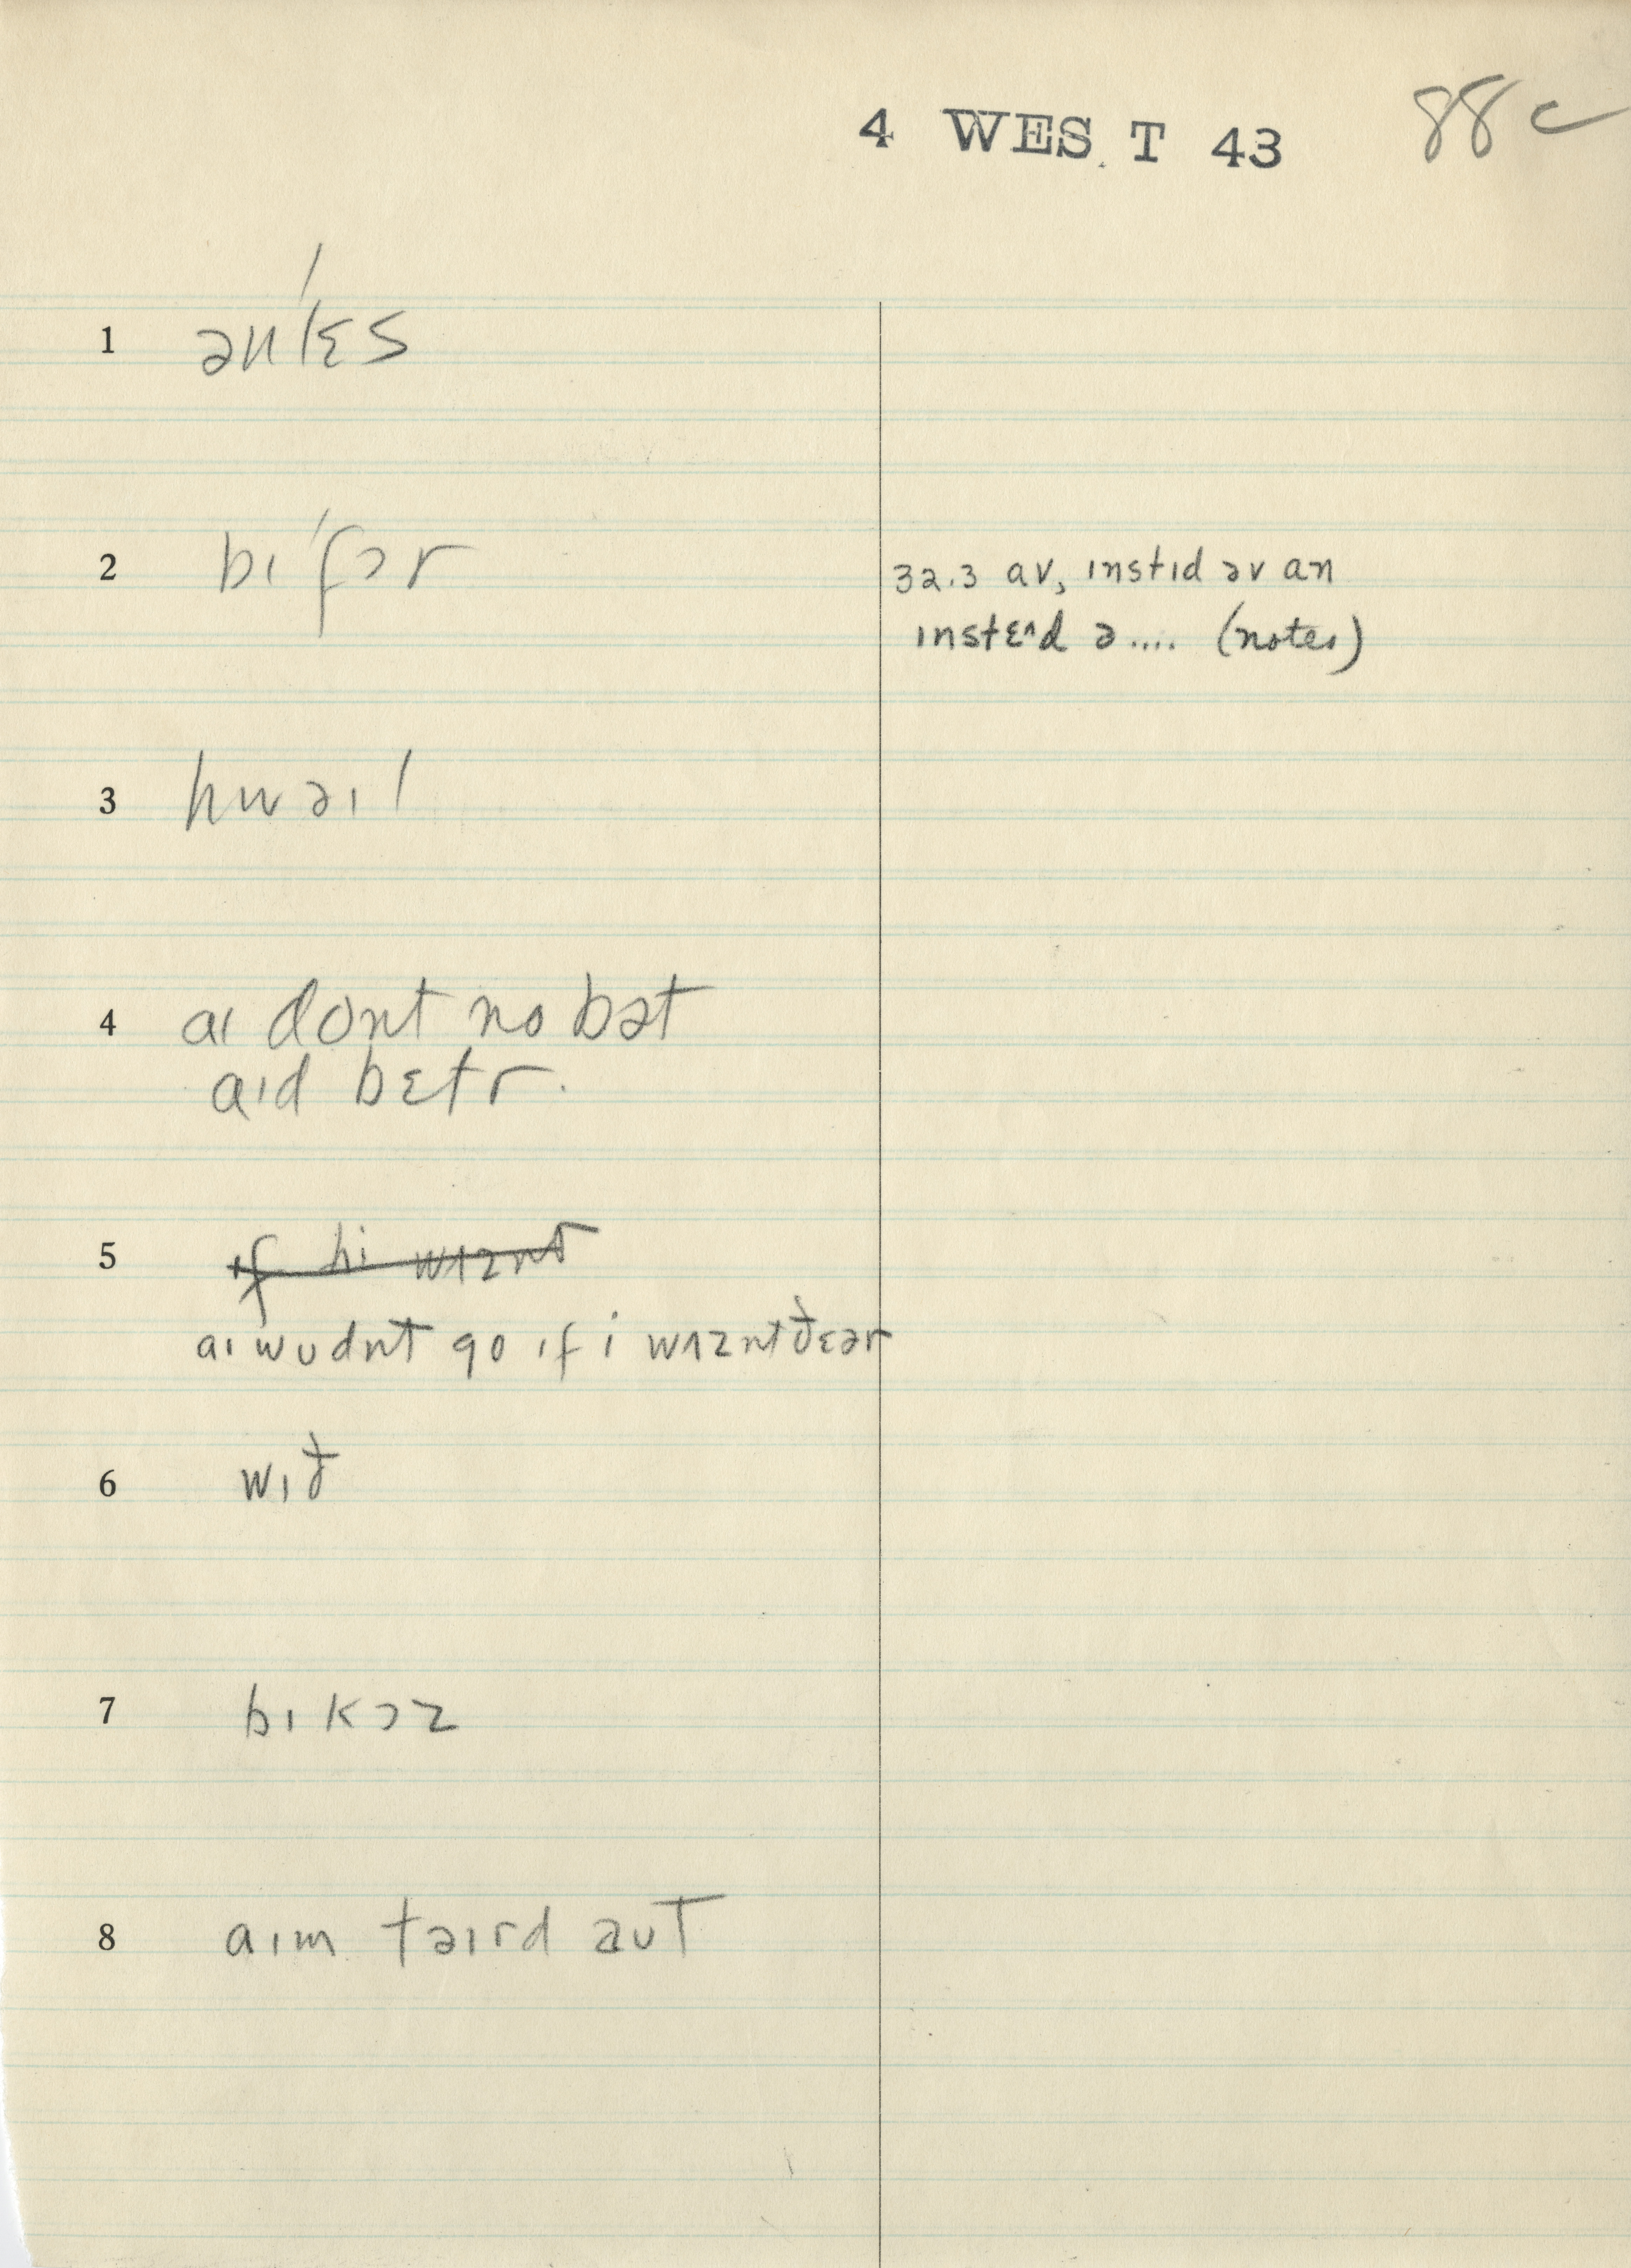 4 WES T 43 88c
1 ənˈlɛs
2 bɪˈfɔr
32.3 av, ɪnstɪd əv an
ɪnstɛ^d ə.... (notes)
3 hwəɪl
4 aɪ dont no bət
aɪd bɛtr.
5 ɪf hi wʌznt
aɪ wudnt go ɪf i wʌznt ðɛər
6 wɪð
7 bɪkɔz
8 aɪm təɪrd əuT